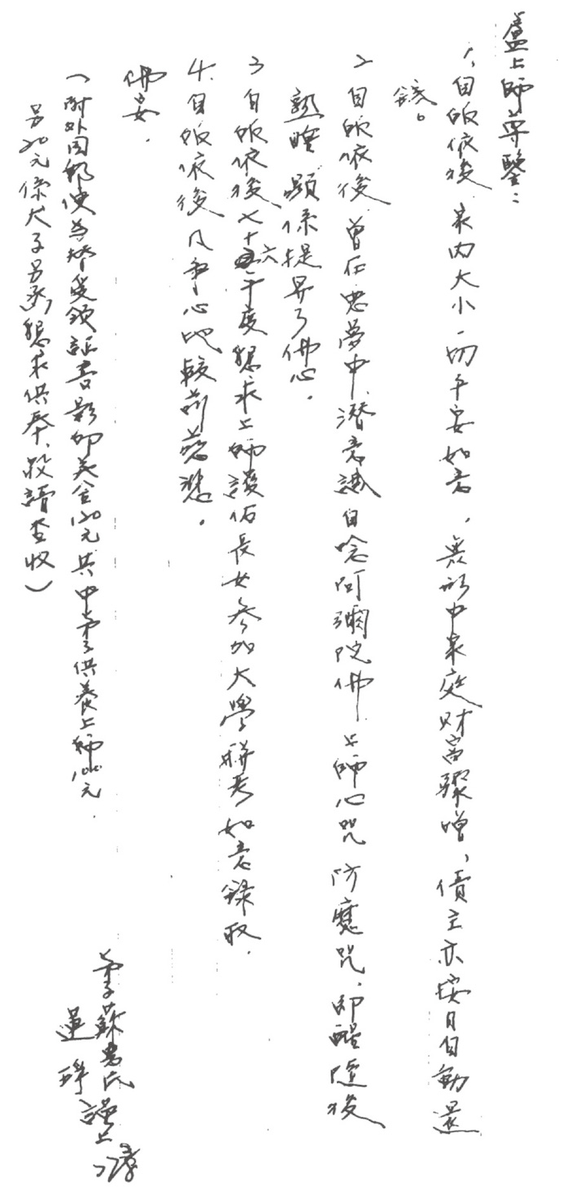 盧上師尊鑒：
1、自皈依後 家內大小一切平安如意，無形中家庭財富驟增，債主亦按月自動還
錢。
2 自皈依後 曾在惡夢中，潛意識自唸阿彌陀佛 上師心咒 防魔咒，即醒 隨後
熟睡 顯係提昇了佛心。
3 自皈依後七十六年度懇求上師護佑長女參加大學聯考如意錄取。
4、自皈依後凡事心地較前慈悲。
佛安。
(附外国郵便為替受領証書影印美金120元其中 供養上師100元.
另20元係大子另函懇求供奉、敬請查收)
李蘇惠氏
蓮 謹上